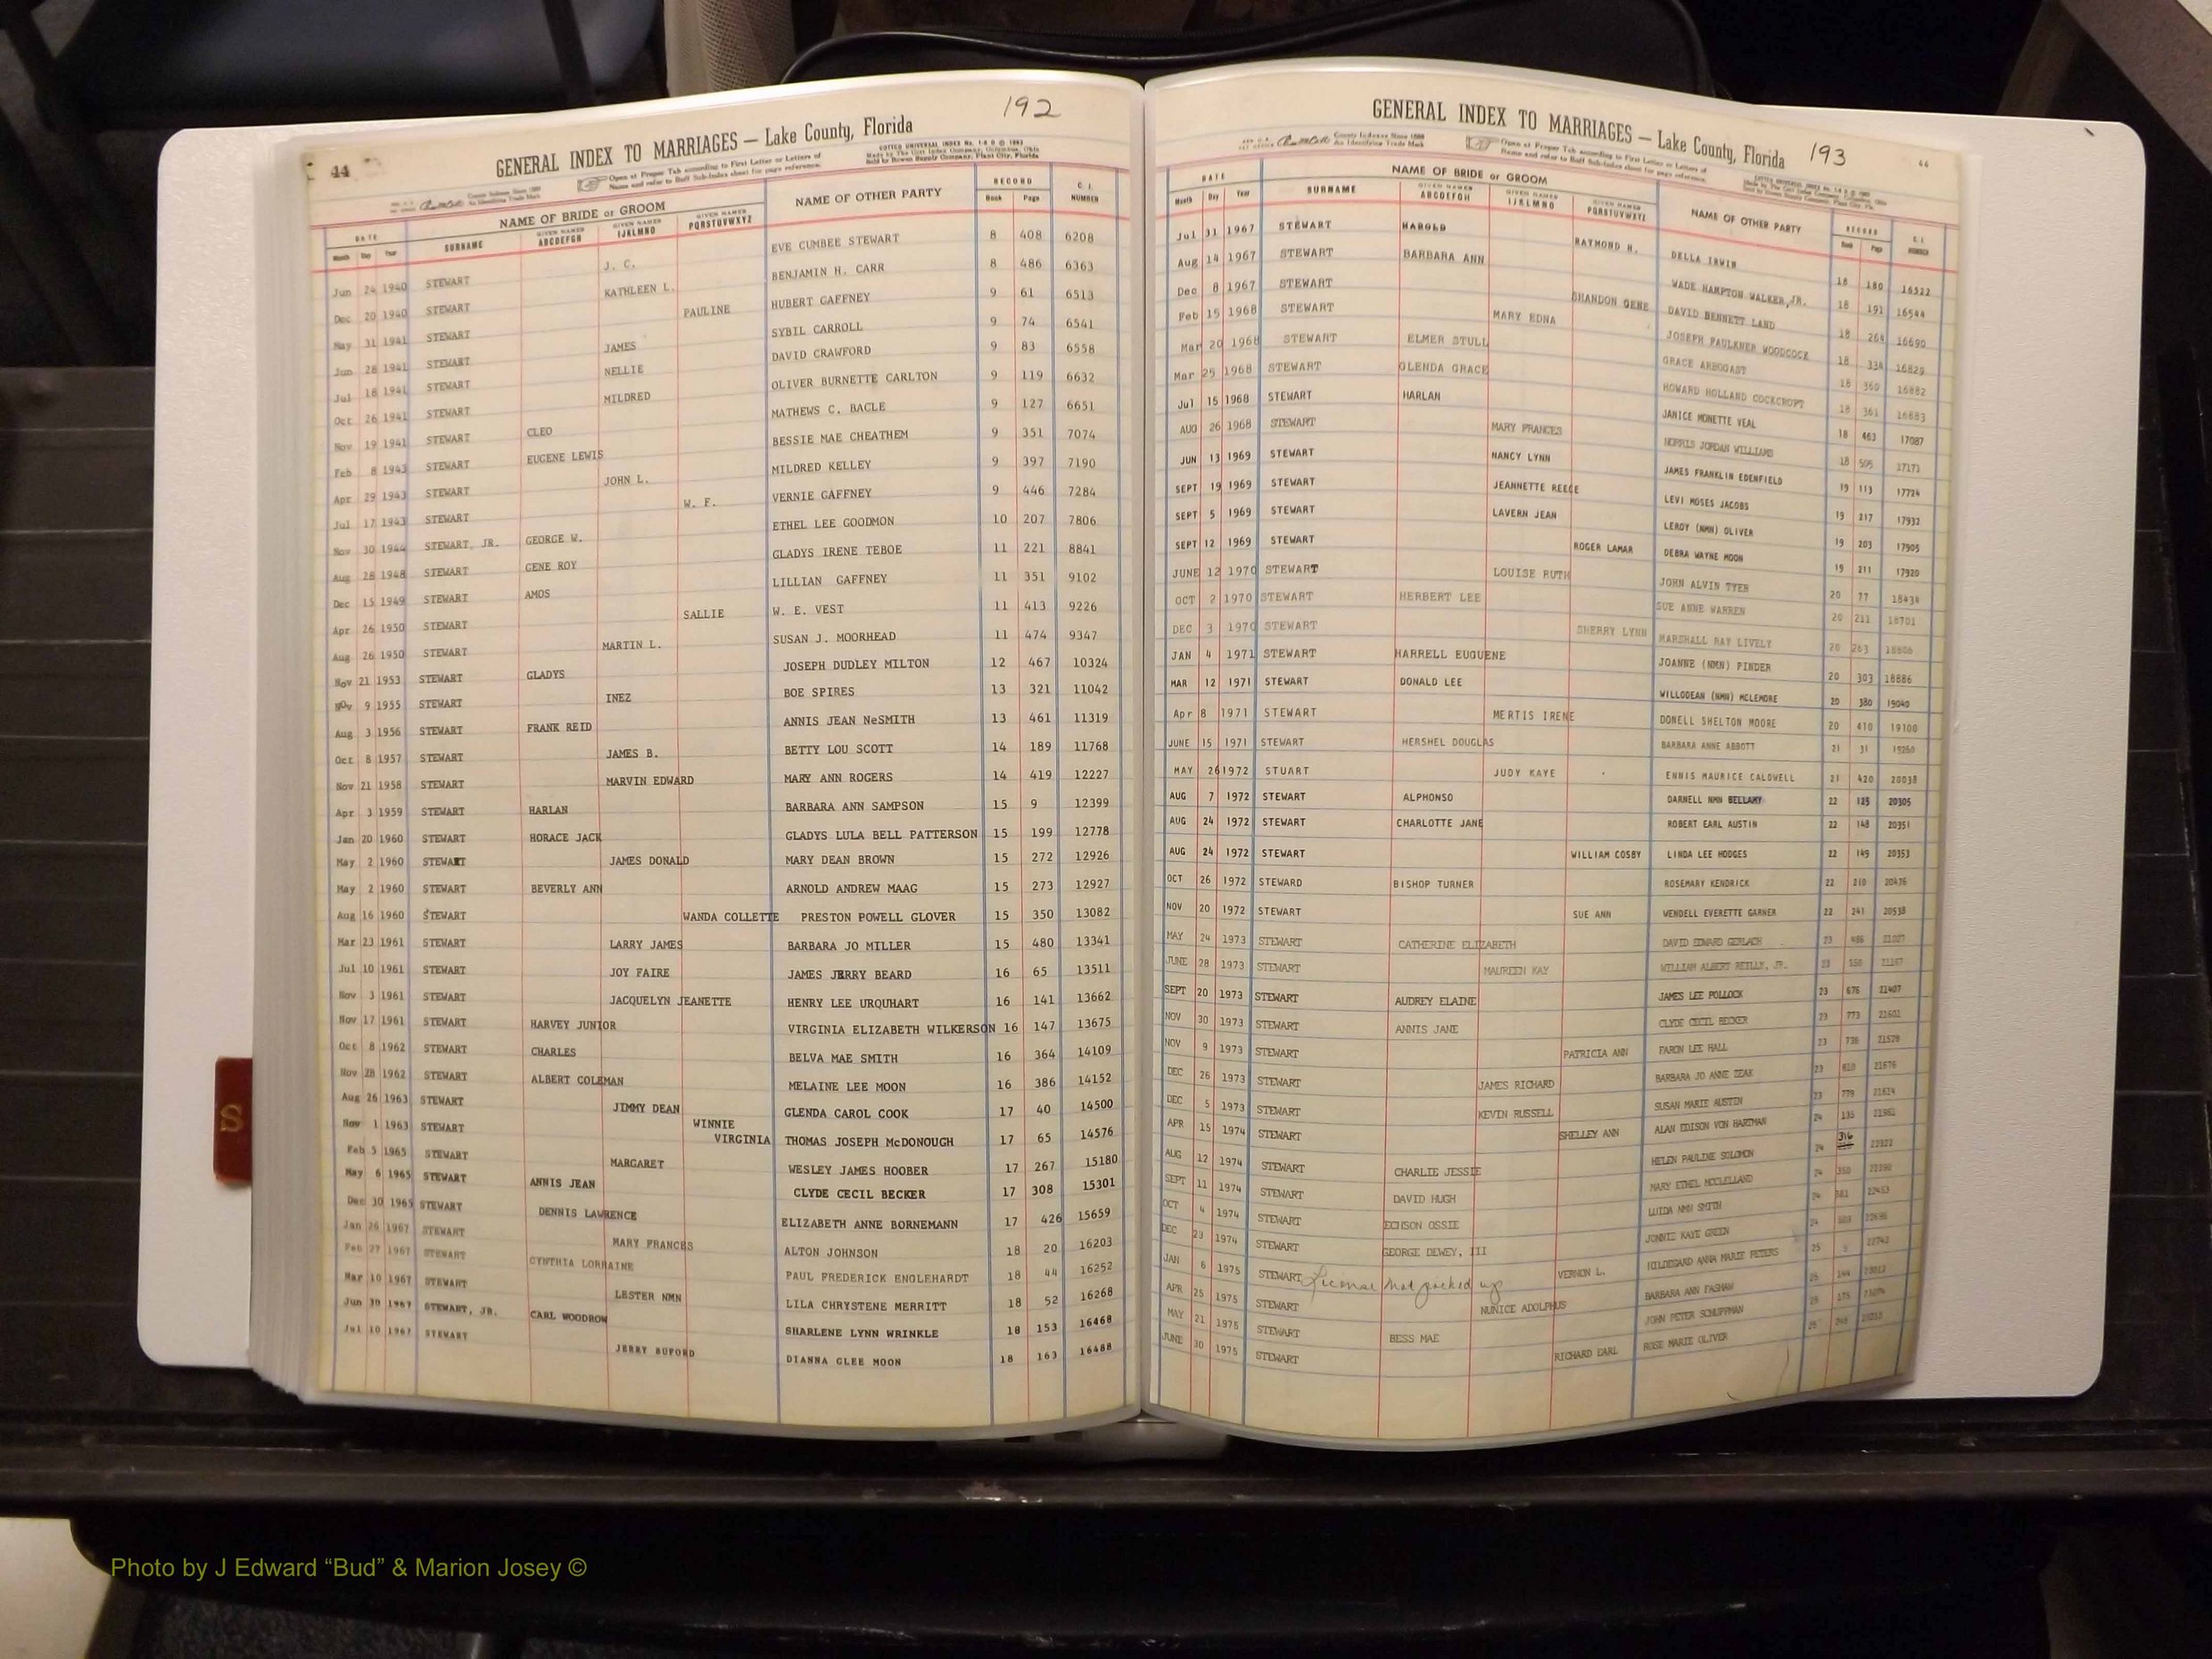 192
44
GENERAL INDEX TO MARRIAGES — Lake County, Florida
COTTCO UNIVERSAL INDEX
Made by The Cott Index Company, Columbus, Ohio
Sold by Bowen Supply Company, Plant City, Florida
County Indexes Since 1888
An Identifying Trade Mark
Open at Proper Tab according to First Letter or Letters of
Name and refer to Buff Sub-Index sheet for page reference.
DATE NAME OF BRIDE or GROOM NAME OF OTHER PARTY RECORD C. I. NUMBER
Month Day Year SURNAME GIVEN NAMES ABCDEFGH GIVEN NAMES IJKLMNO GIVEN NAMES PQRSTUVWXYZ Book Page
Jun 24 1940 STEWART J. C. EVE CUMBEE STEWART 8 408 6208
Dec 20 1940 STEWART KATHLEEN L. BENJAMIN H. CARR 8 486 6363
May 31 1941 STEWART PAULINE HUBERT GAFFNEY 9 61 6513
Jun 28 1941 STEWART JAMES SYBIL CARROLL 9 74 6541
Jul 18 1941 STEWART NELLIE DAVID CRAWFORD 9 83 6558
Oct 26 1941 STEWART MILDRED OLIVER BURNETTE CARLTON 9 119 6632
Nov 19 1941 STEWART CLEO MATHEWS C. BACLE 9 127 6651
Feb 8 1943 STEWART EUGENE LEWIS BESSIE MAE CHEATHEM 9 351 7074
Apr 29 1943 STEWART JOHN L. MILDRED KELLEY 9 397 7190
Jul 17 1943 STEWART W. F. VERNIE GAFFNEY 9 446 7284
Nov 30 1944 STEWART, JR. GEORGE W. ETHEL LEE GOODMON 10 207 7806
Aug 28 1948 STEWART GENE ROY GLADYS IRENE TEBOE 11 221 8841
Dec 15 1949 STEWART AMOS LILLIAN GAFFNEY 11 351 9102
Apr 26 1950 STEWART SALLIE W. E. VEST 11 413 9226
Aug 26 1950 STEWART MARTIN L. SUSAN J. MOORHEAD 11 474 9347
Nov 21 1953 STEWART GLADYS JOSEPH DUDLEY MILTON 12 467 10324
Nov 9 1955 STEWART INEZ BOE SPIRES 13 321 11042
Aug 3 1956 STEWART FRANK REID ANNIS JEAN NeSMITH 13 461 11319
Oct 8 1957 STEWART JAMES B. BETTY LOU SCOTT 14 189 11768
Nov 21 1958 STEWART MARVIN EDWARD MARY ANN ROGERS 14 419 12227
Apr 3 1959 STEWART HARLAN BARBARA ANN SAMPSON 15 9 12399
Jan 20 1960 STEWART HORACE JACK GLADYS LULA BELL PATTERSON 15 199 12778
May 2 1960 STEWART JAMES DONALD MARY DEAN BROWN 15 272 12926
May 2 1960 STEWART BEVERLY ANN ARNOLD ANDREW MAAG 15 273 12927
Aug 16 1960 STEWART WANDA COLLETTE PRESTON POWELL GLOVER 15 350 13082
Mar 23 1961 STEWART LARRY JAMES BARBARA JO MILLER 15 480 13341
Jul 10 1961 STEWART JOY FAIRE JAMES JERRY BEARD 16 65 13511
Nov 3 1961 STEWART JACQUELYN JEANETTE HENRY LEE URQUHART 16 141 13662
Nov 17 1961 STEWART HARVEY JUNIOR VIRGINIA ELIZABETH WILKERSON 16 147 13675
Oct 8 1962 STEWART CHARLES BELVA MAE SMITH 16 364 14109
Nov 28 1962 STEWART ALBERT COLEMAN MELAINE LEE MOON 16 386 14152
Aug 26 1963 STEWART JIMMY DEAN GLENDA CAROL COOK 17 40 14500
Nov 1 1963 STEWART WINNIE VIRGINIA THOMAS JOSEPH McDONOUGH 17 65 14576
Feb 5 1965 STEWART MARGARET WESLEY JAMES HOOBER 17 267 15180
May 6 1965 STEWART ANNIS JEAN CLYDE CECIL BECKER 17 308 15301
Dec 30 1965 STEWART DENNIS LAWRENCE ELIZABETH ANNE BORNEMANN 17 426 15659
Jan 26 1967 STEWART MARY FRANCES ALTON JOHNSON 18 20 16203
Feb 27 1967 STEWART CYNTHIA LORRAINE PAUL FREDERICK ENGLEHARDT 18 44 16252
Mar 10 1967 STEWART LESTER NMN LILA CHRYSTENE MERRITT 18 52 16268
Jun 30 1967 STEWART, JR. CARL WOODROW SHARLENE LYNN WRINKLE 18 153 16468
Jul 10 1967 STEWART JERRY BUFORD DIANNA GLEE MOON 18 163 16488
S
GENERAL INDEX TO MARRIAGES — Lake County, Florida
193
44
County Indexes Since 1888
An Identifying Trade Mark
Open at Proper Tab according to First Letter or Letters of
Name and refer to Buff Sub-Index sheet for page reference.
DATE NAME OF BRIDE or GROOM NAME OF OTHER PARTY RECORD C. I. NUMBER
Month Day Year SURNAME GIVEN NAMES ABCDEFGH GIVEN NAMES IJKLMNO GIVEN NAMES PQRSTUVWXYZ Book Page
Jul 31 1967 STEWART HAROLD RAYMOND H. DELLA IRWIN 18 180 16522
Aug 14 1967 STEWART BARBARA ANN WADE HAMPTON WALKER, JR. 18 191 16544
Dec 8 1967 STEWART SHANDON GENE DAVID BENNETT LAND 18 264 16690
Feb 15 1968 STEWART MARY EDNA JOSEPH FAULKNER WOODCOCK 18 334 16829
Mar 20 1968 STEWART ELMER STULL GRACE ARBOGAST 18 360 16882
Mar 25 1968 STEWART GLENDA GRACE HOWARD HOLLAND COCKCROFT 18 361 16883
Jul 15 1968 STEWART HARLAN JANICE MONETTE VEAL 18 463 17087
AUG 26 1968 STEWART MARY FRANCES NORRIS JORDAN WILLIAMS 18 505 17171
JUN 13 1969 STEWART NANCY LYNN JAMES FRANKLIN EDENFIELD 19 113 17724
SEPT 19 1969 STEWART JEANNETTE REECE LEVI MOSES JACOBS 19 217 17932
SEPT 5 1969 STEWART LAVERN JEAN LEROY (NMN) OLIVER 19 203 17905
SEPT 12 1969 STEWART ROGER LAMAR DEBRA WAYNE MOON 19 211 17920
JUNE 12 1970 STEWART LOUISE RUTH JOHN ALVIN TYER 20 77 18434
OCT 2 1970 STEWART HERBERT LEE SUE ANNE WARREN 20 211 18701
DEC 3 1970 STEWART SHERRY LYNN MARSHALL RAY LIVELY 20 263 18806
JAN 4 1971 STEWART HARRELL EUGUENE JOANNE (NMN) PINDER 20 303 18886
MAR 12 1971 STEWART DONALD LEE WILLODEAN (NMN) MCLEMORE 20 380 19040
Apr 8 1971 STEWART MERTIS IRENE DONELL SHELTON MOORE 20 410 19100
JUNE 15 1971 STEWART HERSHEL DOUGLAS BARBARA ANNE ABBOTT 21 31 19260
MAY 26 1972 STUART JUDY KAYE ENNIS MAURICE CALDWELL 21 420 20038
AUG 7 1972 STEWART ALPHONSO DARNELL NMN BELLAMY 22 125 20305
AUG 24 1972 STEWART CHARLOTTE JANE ROBERT EARL AUSTIN 22 148 20351
AUG 24 1972 STEWART WILLIAM COSBY LINDA LEE HODGES 22 149 20353
OCT 26 1972 STEWARD BISHOP TURNER ROSEMARY KENDRICK 22 210 20476
NOV 20 1972 STEWART SUE ANN WENDELL EVERETTE GARNER 22 241 20538
MAY 24 1973 STEWART CATHERINE ELIZABETH DAVID EDWARD GERLACH 23 486
JUNE 28 1973 STEWART MAUREEN KAY WILLIAM ALBERT REILLY, JR. 23 558
SEPT 20 1973 STEWART AUDREY ELAINE JAMES LEE POLLOCK 23 676 21407
NOV 30 1973 STEWART ANNIS JANE CLYDE CECIL BECKER 23 773 21602
NOV 9 1973 STEWART PATRICIA ANN FARON LEE HALL 23 736 21528
DEC 26 1973 STEWART JAMES RICHARD BARBARA JO ANNE ZEAK 23 810 21676
DEC 5 1973 STEWART KEVIN RUSSELL SUSAN MARIE AUSTIN 23 779 21614
APR 15 1974 STEWART SHELLEY ANN ALAN EDISON VON HARTMAN 24 135
AUG 12 1974 STEWART CHARLIE JESSIE HELEN PAULINE SOLOMON 24 316
SEPT 11 1974 STEWART DAVID HUGH MARY ETHEL MCCLELLAND 24 350
OCT 4 1974 STEWART ECHSON OSSIE LUIDA NMN SMITH 24 381 22453
DEC 23 1974 STEWART GEORGE DEWEY, III JONNIE KAYE GREEN 24
JAN 6 1975 STEWART License not picked up VERNON L. HILDEGARD ANNA MARIE PETERS 25
APR 25 1975 STEWART NUNICE ADOLPHUS BARBARA ANN FASHAW 25 144
MAY 21 1975 STEWART BESS MAE JOHN PETER SCHUFFMAN 25 175
JUNE 30 1975 STEWART RICHARD EARL ROSE MARIE OLIVER 25
Photo by J Edward “Bud” & Marion Josey ©